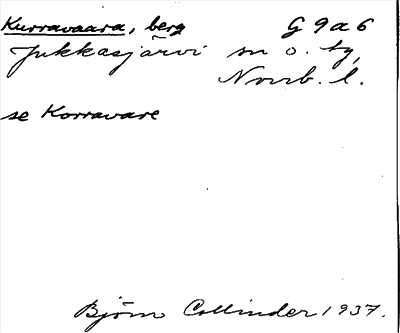 Kurravaara, berg G 9 a 6
Jukkasjärvi sn o. tg,
Norrb. l.
se Korravare
Björn Collinder 1937.